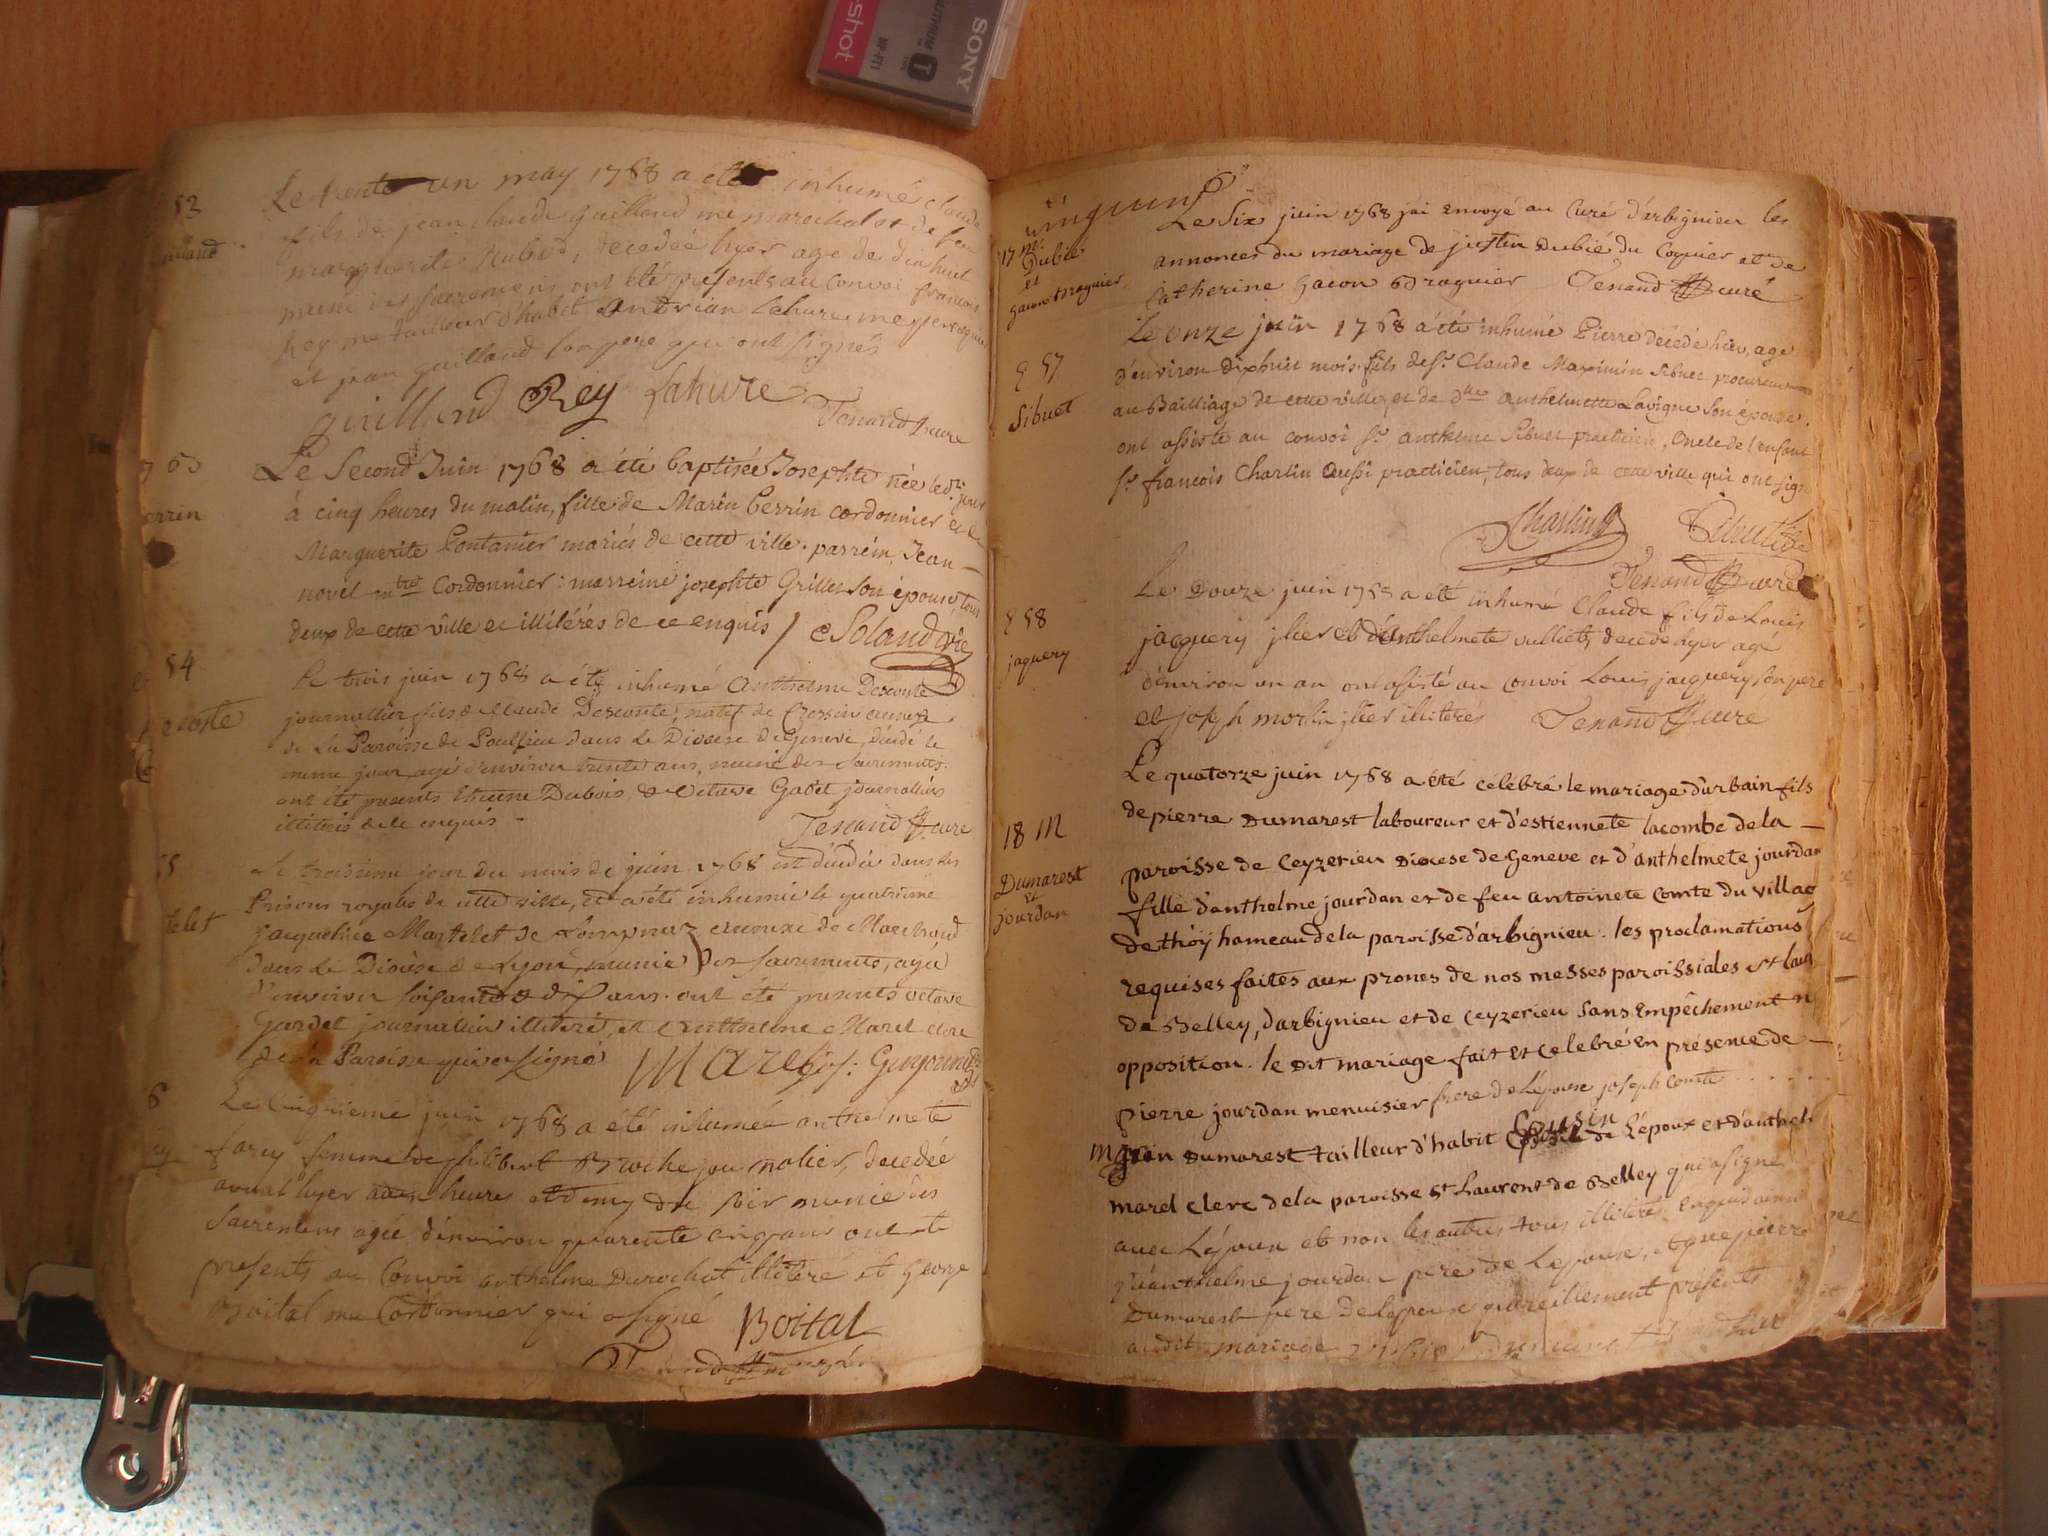 SONY
shot
53
Le trente un may 1768 a été inhumé claude
fils de jean claude guilland me marechal et de feu
marguerite decedée hyer age de dix huit
muni des sacremens ont été présents au convoi françois
Rey me tailleur d'habit lahure me
et jean guilland son pere qui ont signés
guilland Rey Lahure
Tenand curé
Le Second Juin 1768 a été baptisée Josephte née led. jour
à cinq heures du matin, fille de Marin Perrin cordonnier et de
Marguerite Pontanier mariés de cette ville. parrein, Jean
novel mtre Cordonnier: marreine josephte Grillet son épouse, tous
deux de cette ville et illitérés de ce enquis
54
Le trois juin 1768 a été inhumé Anthelme Descoste
journallier fils de Claude Descoste, natif de Crossin annexe
de La Paroisse de Poullieu dans le Diocese de Geneve, décédé le
meme jour agé d'environ trente ans, muni des Sacrements.
ont été presents Etienne Dubois, & Octave Gabet journalliers
illitérés de ce enquis
Tenand curé
55
Le troisieme jour du mois de juin 1768 est décédée dans les
Prisons royales de cette ville, et a été inhumée le quatrieme
Jacqueline Martelet de Lompnaz annexe de Marchand
dans le Diocèse de Lyon, munie des Sacrements, agée
d'environ soisante & dix ans. ont été presents octave
Gardet journallier illitéré, et Anthelme Marel clerc
de la Paroisse qui a signé Marel
6
Le cinquieme juin 1768 a été inhumée anthelmete
fary femme de philibert Broche journalier, decedée
avant hyer a heures et demy du soir munie des
Sacremens agée d'environ quarente cinq ans ont été
presents au Convoi anthelme Durochat illitéré et George
Boital me Cordonnier qui a signé Boital
17 m.
Dubié
et
gacon Braguier
Le Six juin 1768 jai envoyé au Curé d'arbignieu les
annonces du mariage de justin Dubié du Coquier et de
Catherine Gacon Braguier Tenand curé
Le onze juin 1768 a été inhumé Pierre décédé hier, age
57
d'environ dixhuit mois. fils de Sr. Claude Maximin Sibuet procureur
Sibuet
au Bailliage de cette ville, et de Dlle anthelmette Lavigne son épouse.
ont assisté au convoi Sr. anthelme Sibuet practicien, Oncle de l'enfant
Sr. françois Charlin aussi practicien, tous deux de cette ville qui ont sign
Charlin Sibuet
Tenand curé
Le Douze juin 1768 a été inhumé Claude fils de Louis
58
jaquery
jacquery jlier et d'anthelmete vulliet, decedé hyer agé
d'environ un an ont assisté au convoi Louis jacquery son pere
et joseph morlin jlier illiterés Tenand curé
Le quatorze juin 1768 a été célébré le mariage d'urbain fils
18 m
de pierre Dumarest laboureur et d'estiennete lacombe de la
Dumarest
et
jourdan
paroisse de Ceyzerieu Diocese de Geneve et d'anthelmete jourdan
fille d'anthelme jourdan et de feu antoinete Comte du villag
de thoÿ hameau de la paroisse d'arbignieu. les proclamations
requises faites aux prones de nos messes paroissiales St laur
de Belley, d'arbignieu et de Ceyzerieu sans Empêchement n
opposition. le dit mariage fait et celebré en présence de
pierre jourdan menuisier frere de L'épouse joseph Comte
Dumarest tailleur d'habit Cousin de L'époux et d'anthel
marel clerc de la paroisse St Laurent de Belley qui a signé
avec L'époux et non les autres tous illiterés enquis ainsi
qu'anthelme jourdan pere de Lepouse, et que pierre
Dumarest pere de lepoux pareillement présents
audit mariage